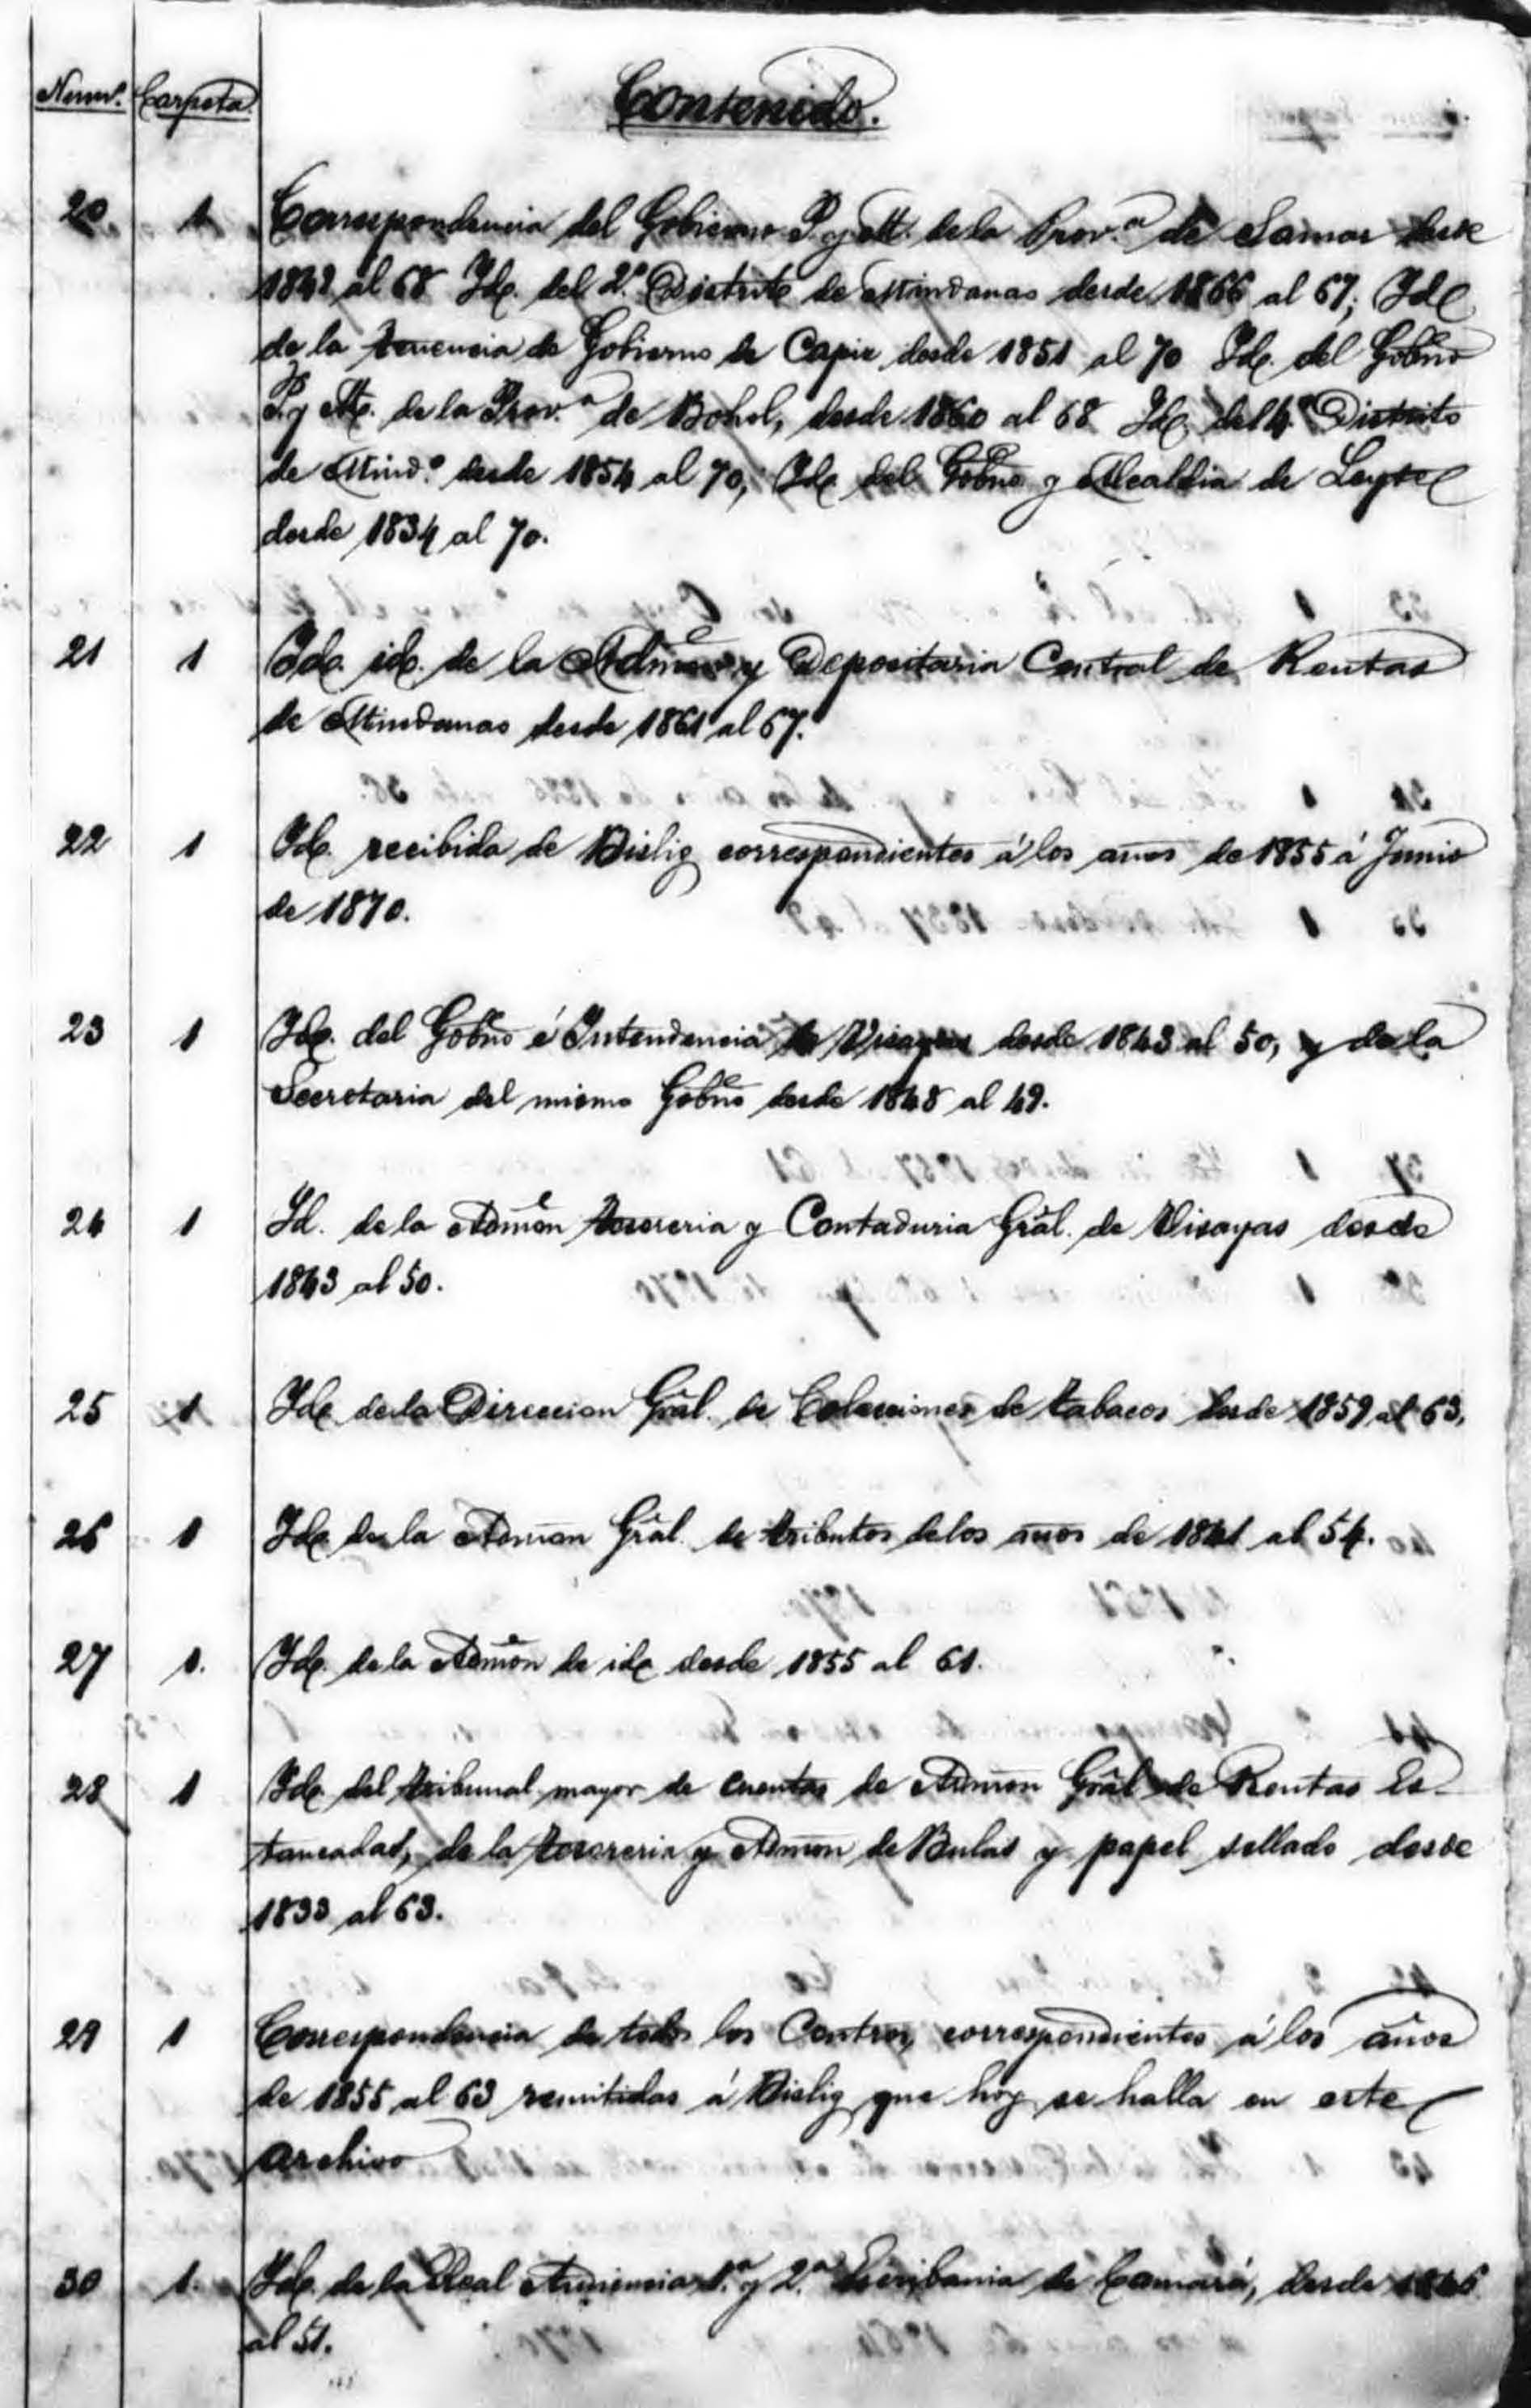 Numº. Carpeta. Contenido.
20. 1 Correspondencia del Gobierno P. y M. de la Prov.ª de Samar desde
1842 al 68 Id. del 2.º Distrito de Mindanao desde 1866 al 67; Id
de la tenencia de Gobierno de Capiz desde 1851 al 70 Id. del Gobno
P. y M. de la Prov.ª de Bohol, desde 1860 al 68 Id. del 4.º Distrito
de Mind.º desde 1854 al 70; Id. del Gobno y Alcaldia de Leyte
desde 1834 al 70.
21 1 Id. id. de la Admon y Depositaria Central de Rentas
de Mindanao desde 1861 al 67.
22 1 Id. recibida de Bislig correspondientes á los años de 1855 á Junio
de 1870.
23 1 Id. del Gobno é Intendencia de Visayas desde 1843 al 50, y de la
Secretaria del mismo Gobno desde 1848 al 49.
24 1 Id. de la Admon tesoreria y Contaduria Gral. de Visayas desde
1843 al 50.
25 1 Id. de la Direccion Gral. de Colecciones de tabacos desde 1859 al 63.
26 1 Id. de la Admon Gral. de tributos de los años de 1841 al 54.
27 1. Id. de la Admon de id. desde 1855 al 61.
28 1 Id. del tribunal mayor de cuentas de Admon Gral de Rentas Es-
tancadas, de la tesoreria y Admon de Bulas y papel sellado desde
1833 al 63.
29 1 Correspondencia de todos los Centros, correspondientes á los años
de 1855 al 63 remitidas á Bislig que hoy se halla en este
archivo
30 1. Id. de la Real Audiencia 1.ª y 2.ª Escribania de Camara, desde
al 51.